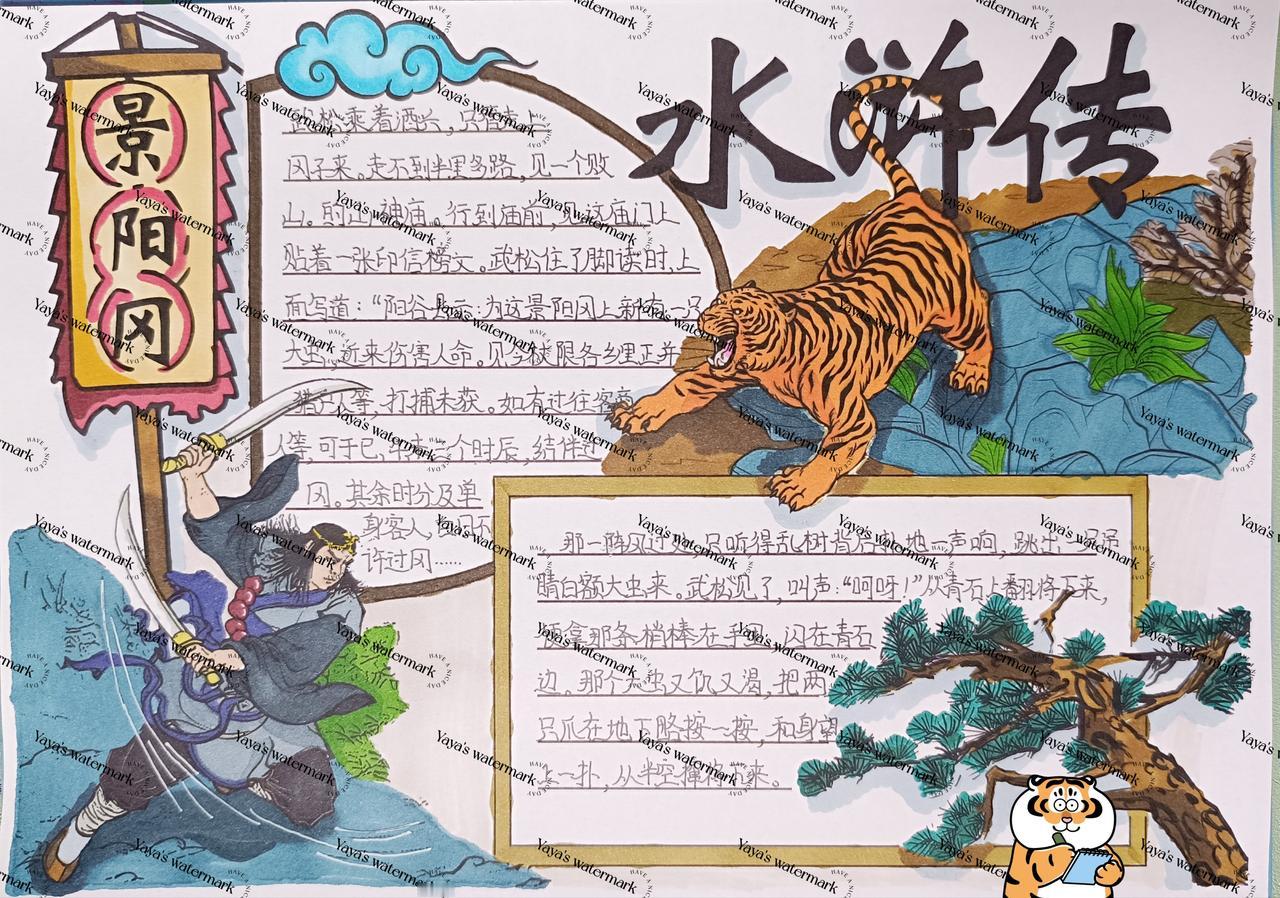 水浒传
景阳冈
武松乘着酒兴，只管走上
冈子来。走不到半里多路，见一个败
山神庙。行到庙前，见这庙门上
贴着一张印信榜文。武松住了脚读时，上
面写道：“阳谷县示：为这景阳冈上新有一只
大虫，近来伤害人命。见今杖限各乡里正并
猎户人等，打捕未获。如有过往客商
人等，可于巳、午、未三个时辰，结伴过
冈。其余时分及单
身客人，白日不
许过冈……
那一阵风过处，只听得乱树背后扑地一声响，跳出一只吊
睛白额大虫来。武松见了，叫声：“呵呀！”从青石上翻将下来，
便拿那条梢棒在手里，闪在青石
边。那个大虫又饥又渴，把两
只爪在地下略按一按，和身望
上一扑，从半空撺将下来。
Yaya's watermark
HAVE A NICE DAY